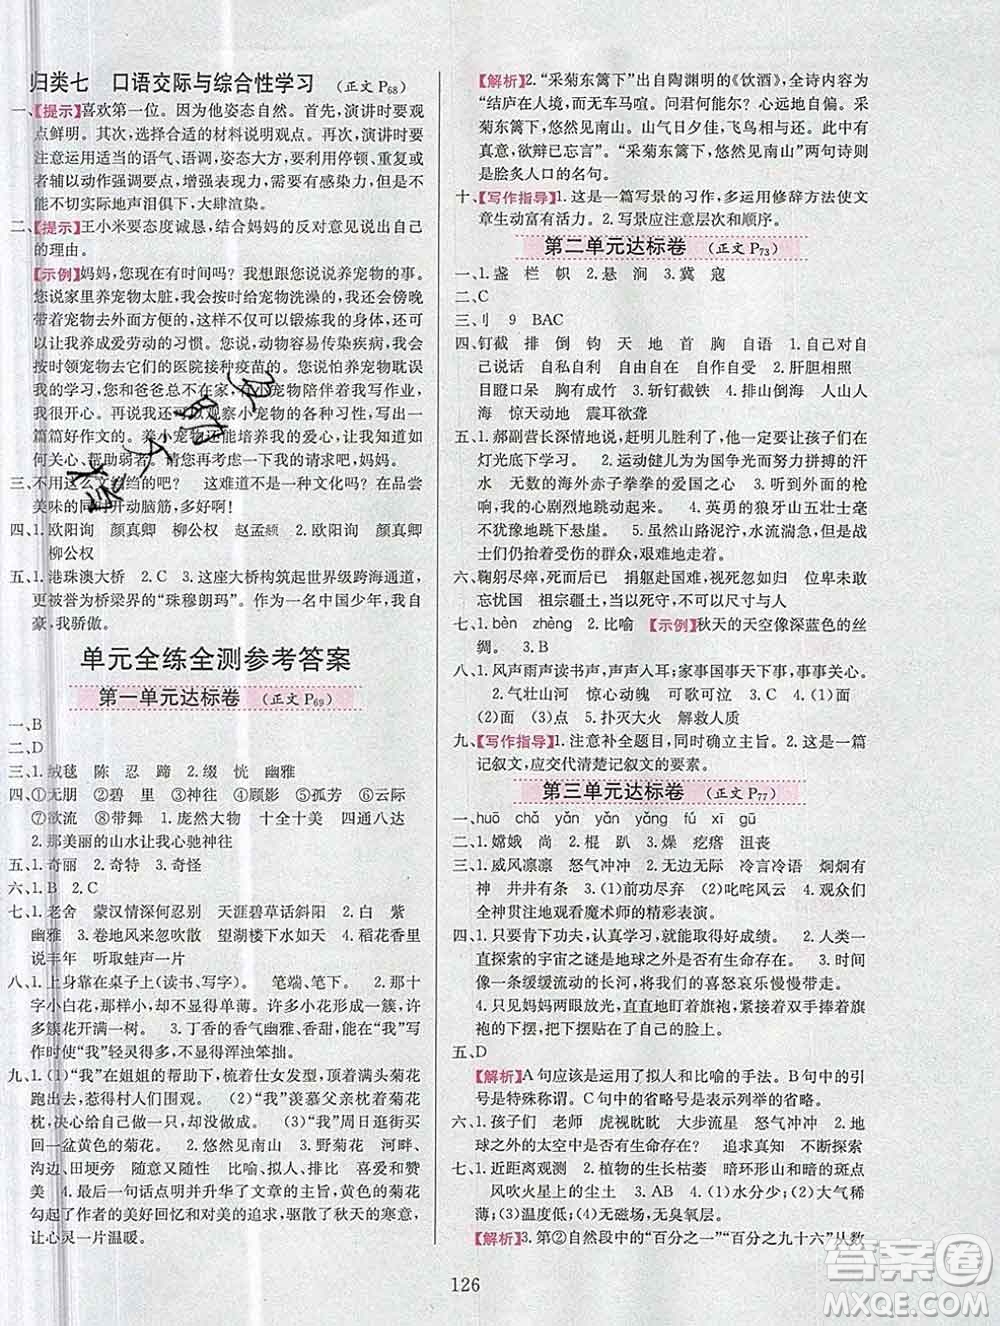 归类七　口语交际与综合性学习　(正文 P68)
一、【提示】喜欢第一位。因为他姿态自然。首先，演讲时要观
点鲜明。其次，选择合适的材料说明观点。再次，演讲时要注
意运用适当的语气、语调，姿态大方，可以利用停顿、重复或
者辅以动作强调要点，增强表现力，要有感染力，但千万不
能不切实际地声泪俱下，大肆渲染。
二、【提示】王小米要态度诚恳，结合妈妈的反对意见说出自己
的理由。
【示例】妈妈，您现在有时间吗？我想和您说说养宠物的事。
您说家里养宠物太脏，我们会定时给宠物洗澡的；我还会傍晚
带着宠物去外面方便，这样既可以锻炼我的身体，又可以让我
养成爱劳动的习惯。您说，动物容易传染疾病，我们可以
带宠物去它们的医院接种疫苗的。您说怕养宠物耽误
我的学习，您和爸爸总不在家，有小宠物陪伴我写作业，
我很开心。再说我还可以观察小宠物的各种习性，写出一
篇篇好作文的。养小宠物还能培养我的爱心，让我知道如
何关心、帮助弱者。请您好好考虑一下我的请求吧，妈妈。
三、不用这么文绉绉的吧？　这难道不是一种文化吗？在品尝
美味的同时开动脑筋，多好啊！
四、1.欧阳询　颜真卿　柳公权　赵孟𫖯　2.欧阳询　颜真卿
柳公权
五、1.港珠澳大桥　2.C　3.这座大桥构筑起世界级跨海通道，
更被誉为桥梁界的“珠穆朗玛”。作为一名中国少年，我自
豪，我骄傲。
单元全练全测参考答案
第一单元达标卷　(正文 P69)
一、B
二、D
三、1.绒毯　陈　忍　蹄　2.缀　恍　幽雅
四、①无朋　②碧　里　③神往　④顾影　⑤孤芳　⑥云际
⑦欲流　⑧带舞　1.庞然大物　十全十美　四通八达
2.那美丽的山水让我心驰神往
五、1.奇丽　2.奇特　3.奇怪
六、1.B　2.C
七、1.老舍　蒙汉情深何忍别　天涯碧草话斜阳　2.白　紫
幽雅　3.卷地风来忽吹散　望湖楼下水如天　4.稻花香里
说丰年　听取蛙声一片
八、1.上身靠在桌子上(读书、写字)。　笔端、笔下。　2.那十
字小白花，那样小，却不显得单薄。许多小花形成一簇，
许多簇花开满一树。　3.丁香的香气幽雅、香甜，让“我”写
作时使“我”活得很多，不居浑浊笨拙。
九、1.(1)“我”在姐姐的帮助下，梳着仕女发型，顶着满头菊花
跑出去，惹得村人们围观。　(2)“我”羡慕父亲枕着菊花
枕，过去好奇、欣赏之余，“我”头顶菊花逛街，回家后枕出
一盆黄色的菊花。　2.悠然见南山　3.(1)田野　河畔、
沟边、田埂旁　随意又随性　比喻、拟人、排比　喜爱和赞
美　4.以一句话点明并升华了文章的主旨，黄色的菊花
勾起了作者的美好回忆和对美的追求，驱散了秋天的寒意，
让心灵一片温暖。
【解析】2.“采菊东篱下”出自陶渊明的《饮酒》，全诗内容为
“结庐在人境，而无车马喧。问君何能尔？心远地自偏。采
菊东篱下，悠然见南山。山气日夕佳，飞鸟相与还。此中有
真意，欲辩已忘言”。“采菊东篱下，悠然见南山”两句诗则
是脍炙人口的名句。
十、【写作指导】1.这是一篇写景的习作，多运用修辞方法使文
章生动富有活力。2.写景应注意层次和顺序。
第二单元达标卷　(正文 P73)
一、1.盏　栏　帜　2.悬　涧　3.冀　寇
二、C
三、刂　9　BAC
四、钉截　排　倒　钩　天　地　首　胸　自语　1.自己对自
己说话　自私自利　自由自在　自给自足　2.肝胆相照
目瞪口呆　胸有成竹　3.斩钉截铁　4.排山倒海　人山人
海　惊天动地　震耳欲聋
五、1.郝副营长深情地说，赶明儿胜利了，他一定要让孩子们在
灯光底下学习。　2.运动健儿为国争光而奋力拼搏的汗
水　无数的海外赤子拳拳的爱国之心　3.听到大海的枪
响，我的心剧烈地跳动起来。　4.英勇的狼牙山五壮士毫不
犹豫地跳下悬崖。　5.虽然山路泥泞，水流湍急，但是战
士们仍抢救受伤的群众，艰难地前行着。
六、鞠躬尽瘁，死而后已　捐躯赴国难，视死忽如归　位卑未敢
忘忧国　祖宗疆土，当以死守，不可以尺寸与人
七、1.bèn　zhèng　2.比喻　【示例】秋天的天空像深蓝色的丝
绸。　3.B
八、1.风声雨声读书声，声声入耳；家事国事天下事，事事关心
2.气壮山河　惊心动魄　可歌可泣　3.C　4.(1)面
(2)面　(3)点　5.扑灭大火　解救人质
九、【写作指导】1.注意补全题目，同时确立主旨。2.这是一篇
记叙文，应交代清楚记叙文的要素。
第三单元达标卷　(正文 P77)
一、huō　chǎ　yǎn　yǎn　yǎng　fú　xī　gū
二、1.嫦娥　尚　2.棍　趴　3.燥　疙瘩　沮丧
三、1.威风凛凛　怒气冲冲　2.无边无际　冷言冷语　炯炯有
神　井井有条　3.(1)前功尽弃　(2)叱咤风云　4.我们
全神贯注地观看魔术师的精彩表演。
四、1.只要肯下功夫，认真学习，就能取得好成绩。　2.人类一
直探索的宇宙之谜是地球之外是否有生命存在。　3.时
间像一条缓缓流动的长河，将我们的喜怒哀乐慢慢带走。
4.只见妈妈两眼放光，直直地盯着旗袍，紧接着双手捧着旗
袍的下摆，把下摆贴在了自己的脸上。
五、D
【解析】A句应该是运用了拟人和比喻的手法。B句中的引
号是特殊称谓。C句中的省略号是表示列举的省略。
六、1.孩子们　老师　虎视眈眈　大步流星　怒气冲冲　2.地
球之外的太空中是否有生命存在？　追求真知　不断探索
七、1.近距离观测　2.植物的生长枯萎　暗环形山和暗的斑点
风吹火星上的尘土　3.AB　4.(1)水分少；(2)大气稀
薄；(3)温度低；(4)无磁场，无臭氧层。
【解析】3.第②自然段中的“百分之一”“百分之九十六”从数
126
答案圈
MXQE.COM